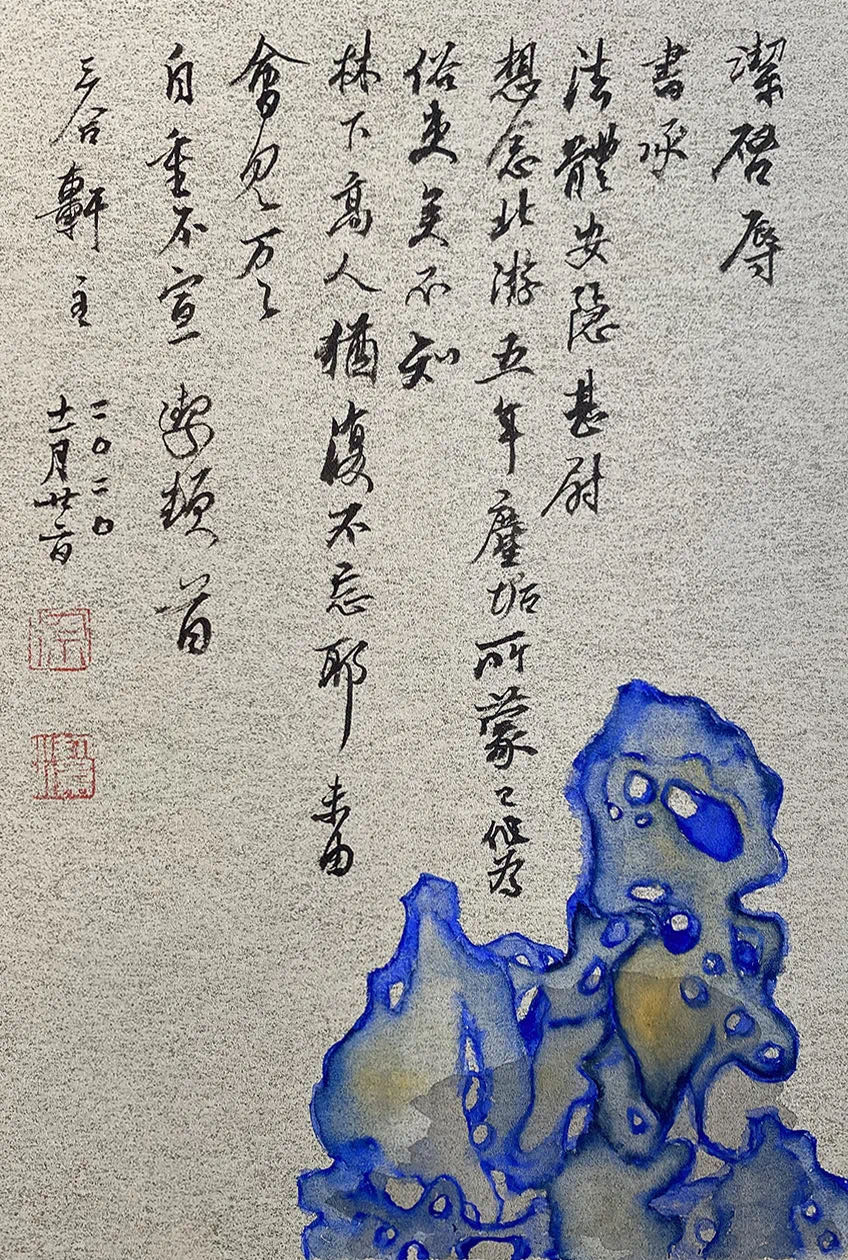 潔啓辱
書承
法體安隱甚尉
想念北游五年塵垢所蒙已化為
俗吏矣不知
林下高人猶復不忘耶未由
會見万万
自重不宣 潔頓首
三合軒主
二〇二〇
十一月廿二日